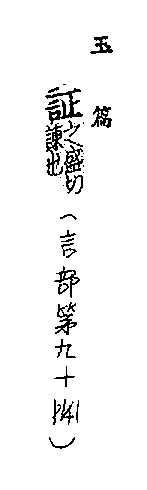 玉篇
証之盛切
諫也
(言部第九十
)